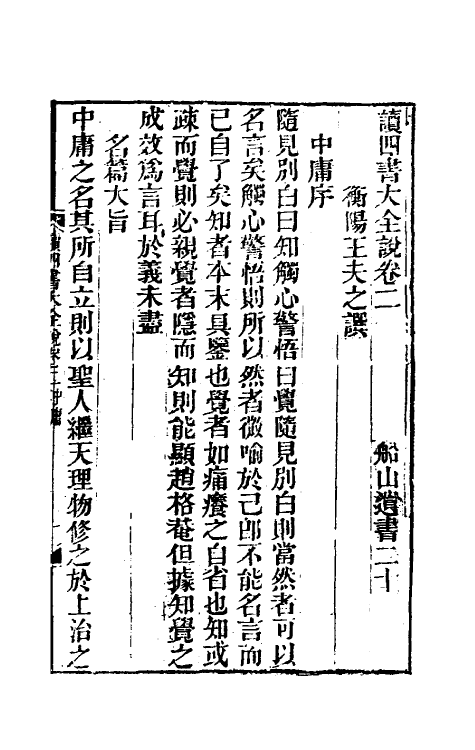 讀四書大全說卷二
船山遺書二十
衡陽王夫之譔
中庸序
隨見別白曰知觸心警悟曰覺隨見別白則當然者可以
名言矣觸心警悟則所以然者微喻於己卽不能名言而
已自了矣知者本末具鑒也覺者如痛癢之自省也知或
疎而覺則必親覺者隱而知則能顯趙格菴但據知覺之
成效爲言耳於義未盡
名篇大旨
中庸之名其所自立則以聖人繼天理物修之於上治之
讀四書大全說卷二中庸
一